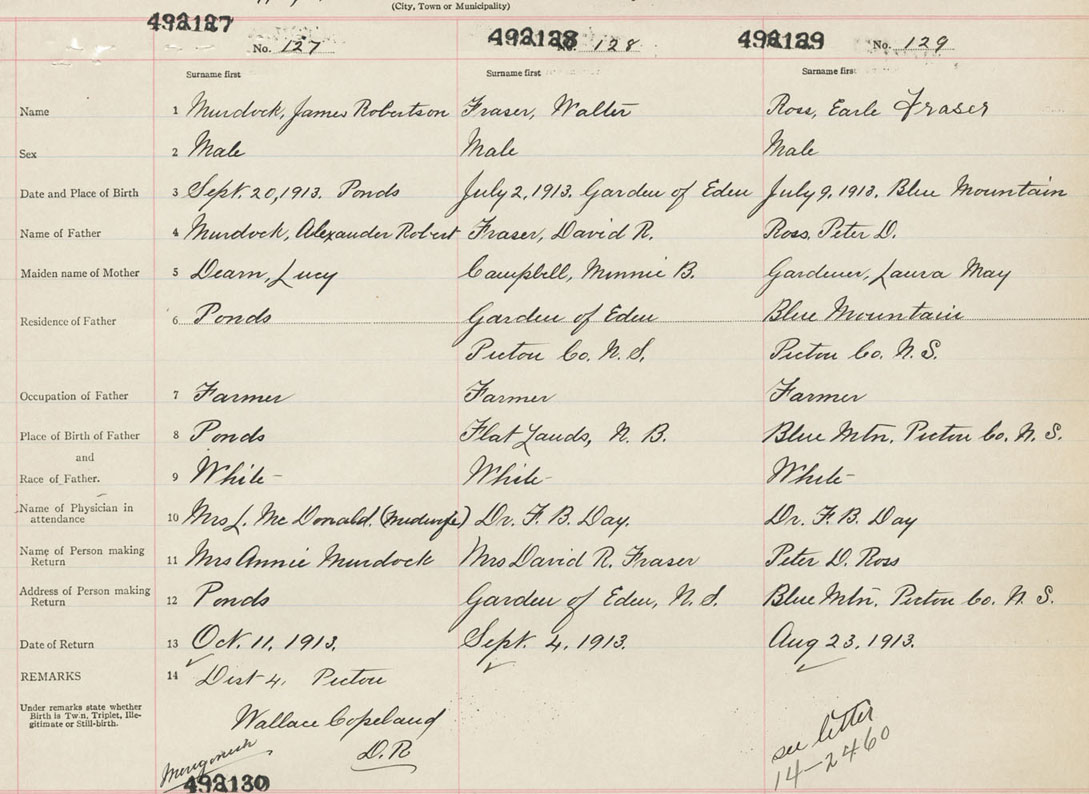 (City, Town or Municipality)
No. 127 128 No. 129
Surname first Surname first Surname first
Name 1 Murdock, James Robertson Fraser, Walter Ross, Earle Fraser
Sex 2 Male Male Male
Date and Place of Birth 3 Sept. 20, 1913. Ponds July 2, 1913. Garden of Eden July 9, 1913. Blue Mountain
Name of Father 4 Murdock, Alexander Robert Fraser, David R. Ross, Peter D.
Maiden name of Mother 5 Dearn, Lucy Campbell, Minnie B. Gardener, Laura May
Residence of Father 6 Ponds Garden of Eden Blue Mountain
Pictou Co. N. S. Pictou Co. N. S.
Occupation of Father 7 Farmer Farmer Farmer
Place of Birth of Father 8 Ponds Flat Lands, N. B. Blue Mtn. Pictou Co. N. S.
and
Race of Father. 9 White White White
Name of Physician in
attendance 10 Mrs L. McDonald. (Midwife) Dr. F. B. Day. Dr. F. B. Day
Name of Person making
Return 11 Mrs Annie Murdock Mrs David R. Fraser Peter D. Ross
Address of Person making
Return 12 Ponds Garden of Eden, N. S. Blue Mtn. Pictou Co. N. S.
Date of Return 13 Oct. 11, 1913. Sept. 4, 1913. Aug 23, 1913.
REMARKS 14 Dist 4, Pictou
Under remarks state whether
Birth is Twin, Triplet, Ille-
gitimate or Still-birth.
Wallace Copeland
D.R
Merigomish
see letter
14-2460